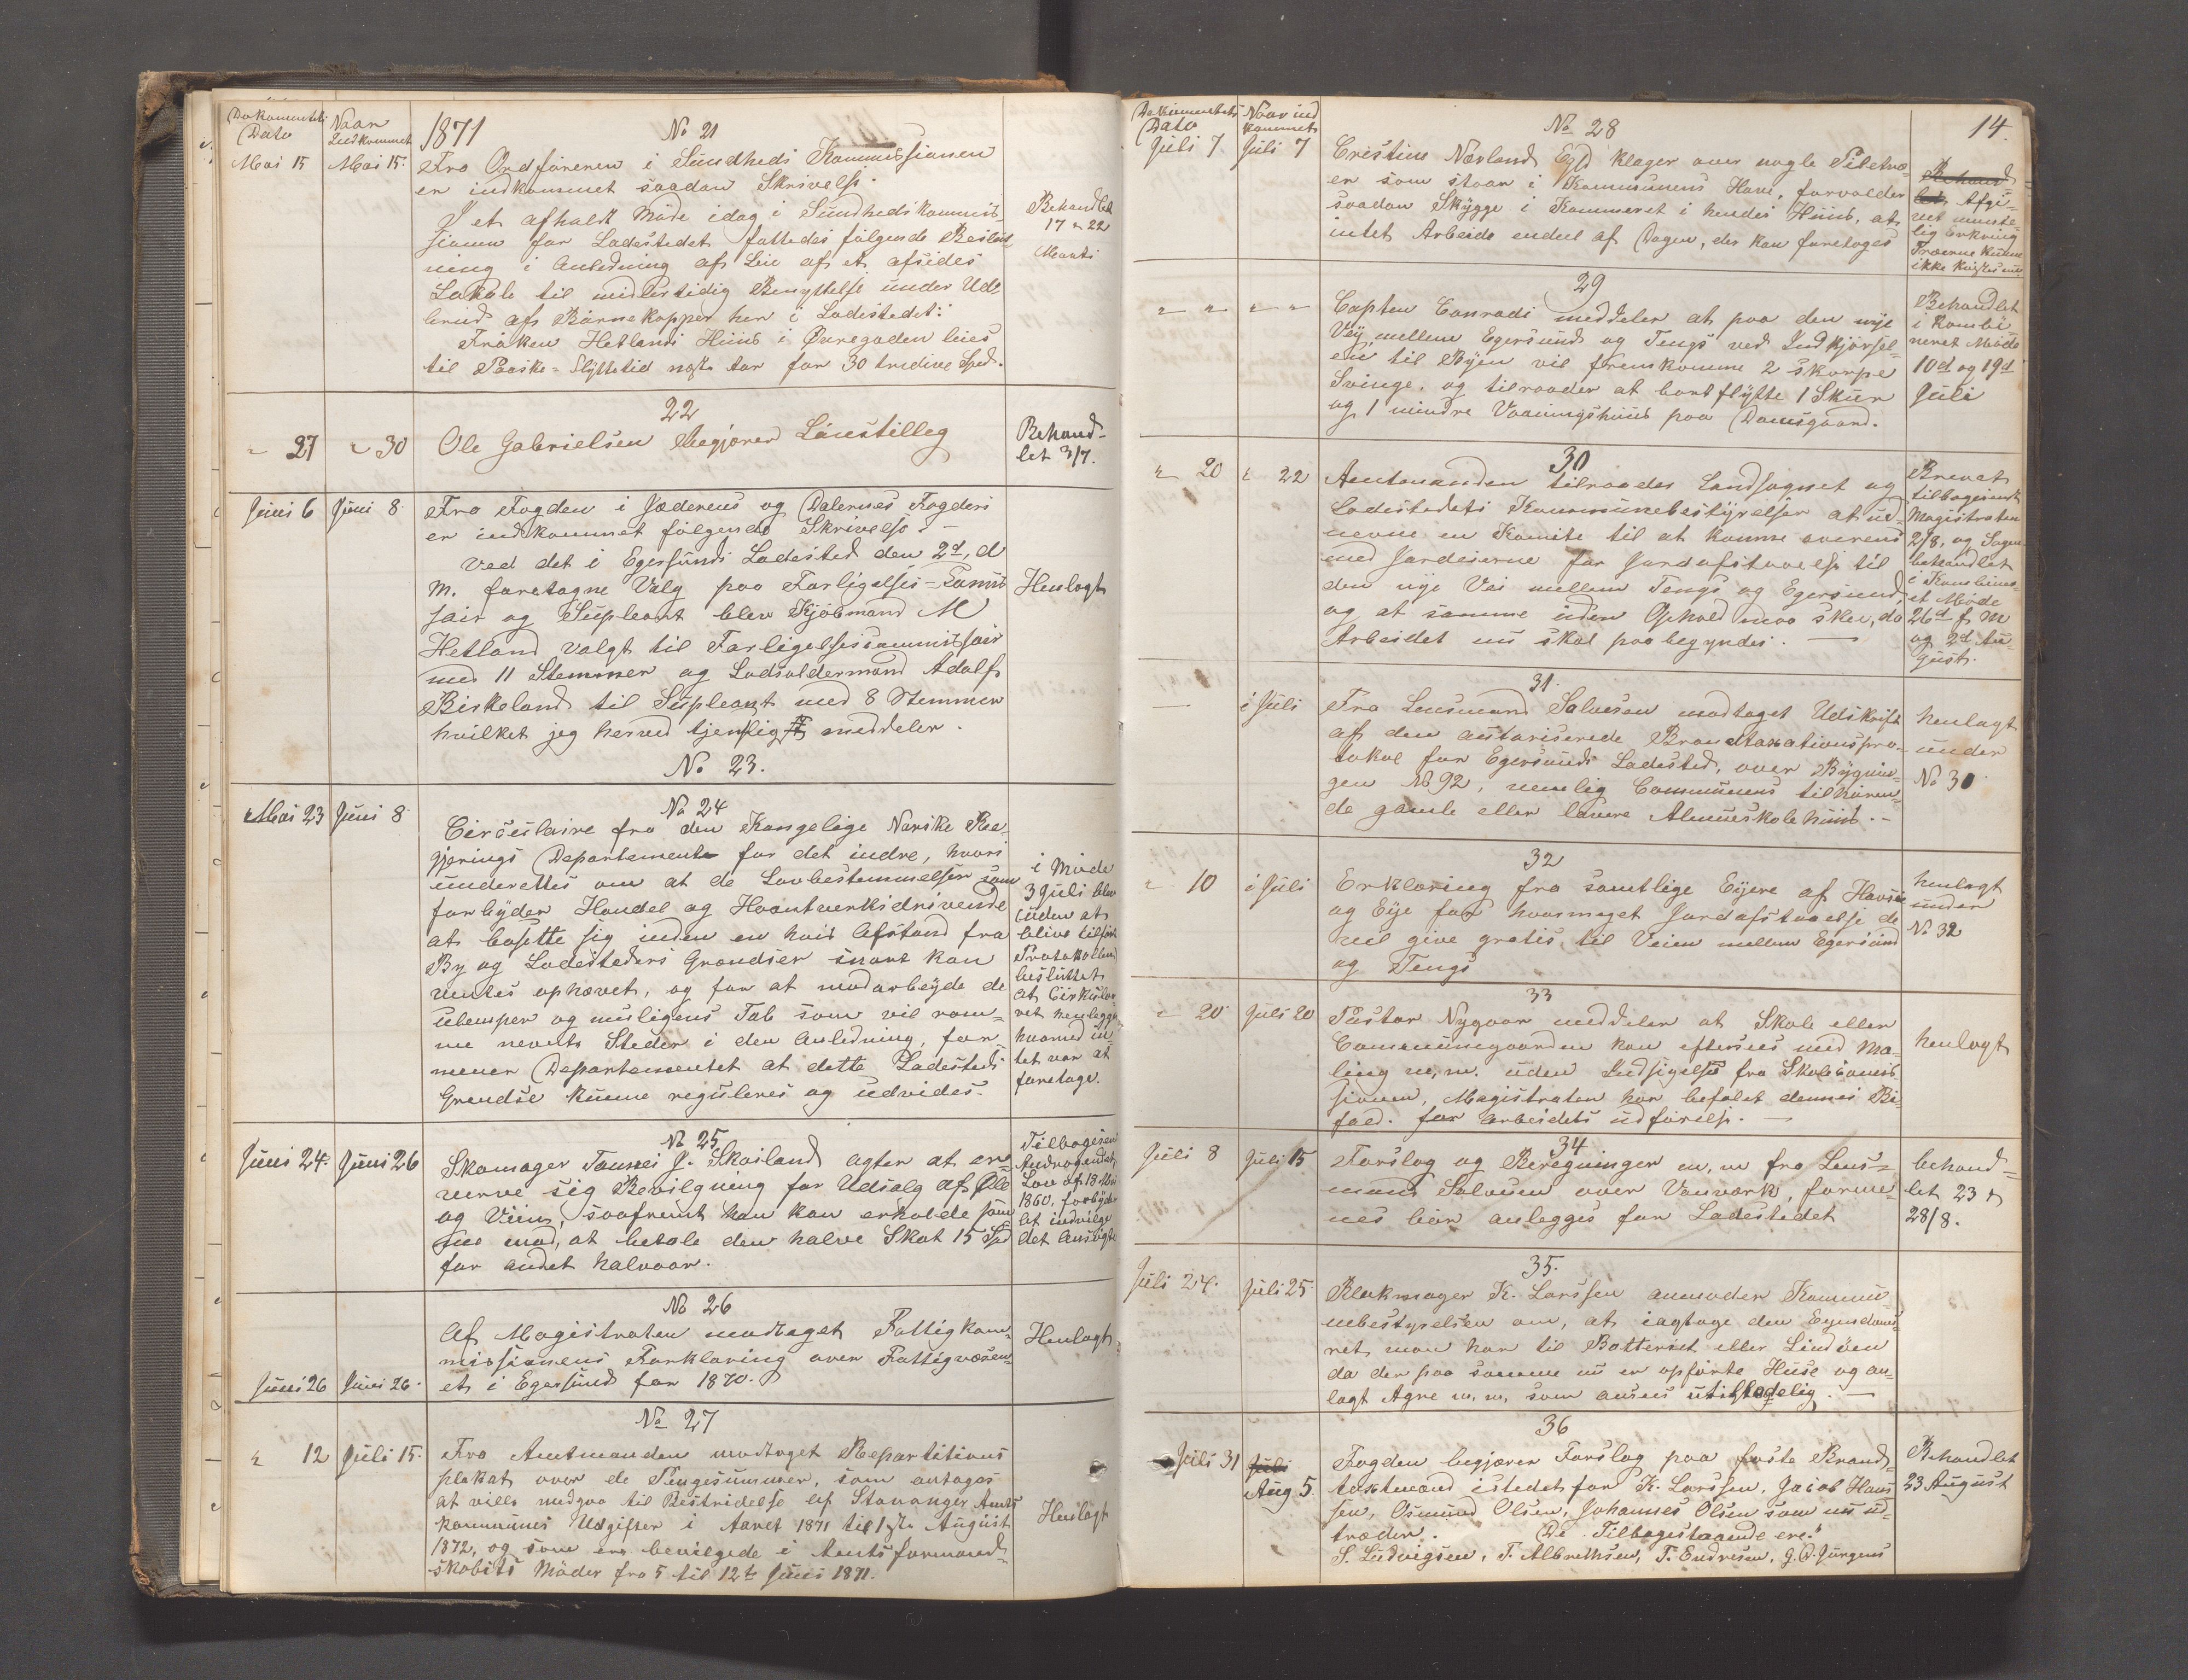 Dokumentets Dato
Naar Indkommet
1871
No 21
Mai 15
Mai 15.
Fra Ordføreren i Sundheds Kommissionen
er indkommet saadan Skrivelse.
I et afholdt Møde idag i Sundhedskommis-
sionen for Ladestedet fattedes følgende Beslut-
ning i Anledning af Leie af et afsides
Lokale til midlertidig Benyttelse under Ud-
brud af Barnekopper her i Ladestedet:
Frøken Hetlands Huus i Øvregaden leies
til Paaske-Flyttetid næste Aar for 30 tredive Spd.
Behandlet
17 & 22
22
" 27
" 30
Ole Gabrielsen begjærer Lønstilleg
Behand-
let 3/7.
Juni 6
Juni 8
Fra Fogden i Jæderens og Dalernes Fogderi
er indkommet følgende Skrivelse. -
Ved det i Egersunds Ladested den 2d, d
M. foretagne Valg paa Forligelses-Comis-
sair og Supleant blev Kjøbmand M
Hetland valgt til Forligelsescommissair
med 11 Stemmer og Lodsoldermand Adolf
Birkeland til Supleant med 8 Stemmer
hvilket jeg herved tjenstligst meddeler.
Henlagt
No 23.
No 24
Mai 23
Juni 8
Circulaire fra den Kongelige Norske Re-
gjerings Departement for det indre, hvori
underettes om at de Lovbestemmelser som
forbyder Handel og Haantverksdrivende
at bosette sig inden en hvis Afstand fra
By og Ladesteders Grændser snart kan
ventes ophævet, og for at modarbeyde de
ulemper og muligens Tab som vil ram-
me nevnte Steder i den Anledning, for-
mener Departementet at dette Ladesteds
Grendse kunne reguleres og udvides.
i Møde
3 Juli blev
uden at
blive tilført
Protokollen
besluttet
at Cirkulæ-
ret henlegges
hvormed in-
tet var at
foretage.
No 25
Juni 24.
Juni 26
Skomager Tønnes J. Skailand agter at er-
verve sig Bevilgning for Udsalg af Øl
og Viin, saafremt han kan erholde sam-
me mod, at betale den halve Skat 15 Spd
for andet halvaar.
Tilbagesen
Andragendet
Lov af 18 Mai
1860, forbyder
at indvilge
det Ansøgte
No 26
Juni 26
Juni 26.
Af Magistraten modtaget Fattigkom-
missionens Forklaring over Fattigvæsen-
et i Egersund for 1870.
Henlagt
No 27
" 12
Juli 15.
Fra Amtmanden modtaget Repartitions
plakat over de Pengesummer, som antages
at ville medgaa til Bestridelse af Stavanger Amts
kommunes Udgifter i Aaret 1871 til 1ste August
1872, og som ere bevilgede i Amtsformand-
skabets Møder fra 5 til 12te Juni 1871.
Henlagt
Dokumentets Dato
Naar ind kommet
14.
No 28
Juli 7
Juli 7
Cristine Nærland Egsd klager over nogle Piletræ-
er som staar i Kommunens Have, forvolder
saadan Skygge i Kammeret i hendes Huus, at
intet Arbeide endeel af Dagen, der kan foretages
Behand
let, Afgi-
vet munte-
lig Erkring
Træerne kunne
ikke
29
" "
" "
Capten Conradi meddeler at paa den nye
Vej mellem Egersund og Tengs ved Indkjørsel-
en til Byen vil fremkomme 2 skarpe
Svinge, og tilraader at bortflytte 1 Skur
og 1 mindre Vaaningshuus paa Damsgaard.
Behandlet
i Kombi-
neret Møde
10d og 19d
Juli
30
" 20
" 22
Amtmanden tilraader Landsognet og
Ladestedets Kommunebestyrelser at ud-
nevne en Komite til at komme overens
med Jordeierne for Jordafstaaelse til
den nye Vei mellem Tengs og Egersund,
og at samme uden Ophold maa skee, da
Arbeidet nu skal paabegyndes. -
Brevet
tilbagesendt
Magistraten
2/8, og Sagen
behandlet
i Kombine-
et Møde
26d f. M
og 2d Au-
gust.
31.
i Juli
Fra Lensmand Salvesen modtaget Udskrift
af den autoriserede Brandtaxationspro-
tokol for Egersunds Ladested, over Bygnin-
gen No 92, nemlig Communens tilhøren-
de gamle eller lavere Almueskolehuus. -
henlagt
under
No 30
32
" 10
i Juli
Erklæring fra samtlige Eyere af Havsø
og Eije for hvormeget Jordafstaaelse de
vil give gratis til Veien mellem Egersund
og Tengs
henlagt
under
No 32
33
" 20
Juli 20
Pastor Nygaar meddeler at Skole eller
Communegaarden kan eftersees med Ma-
ling m, m. uden Indsigelse fra Skolecomis-
sionen, Magistraten har befalet dennes Bi-
fald. for Arbeidets udførelse. -
henlagt
34
Juli 8
Juli 15
Forslag og Beregninger m, m fra Lens-
mand Salvesen over Vanværk, forme-
nes bør anlegges for Ladestedet
behand-
let 23 &
28/8.
35.
Juli 24.
Juli 25
Blokmager K. Larssen anmoder Kommu-
nebestyrelsen om, at iagttage den Eyendoms-
ret man har til Batteriet eller Lindøen
da der paa samme nu er opførte Huse og an-
lagt Agre m, m, som ansees utilstædelig. -
36
Juli 31
Juli
Aug 5
Fogden begjærer Forslag paa faste Brand-
taxtmænd istedet for K. Larssen, Jacob Hans
sen, Osmund Olsen, Johannes Olsen som nu ud-
træder. De Tilbagestaaende ere:
S. Ludvigsen, T. Albrethsen, T. Endresen, G. D. Jürgens
Behandlet
23 August